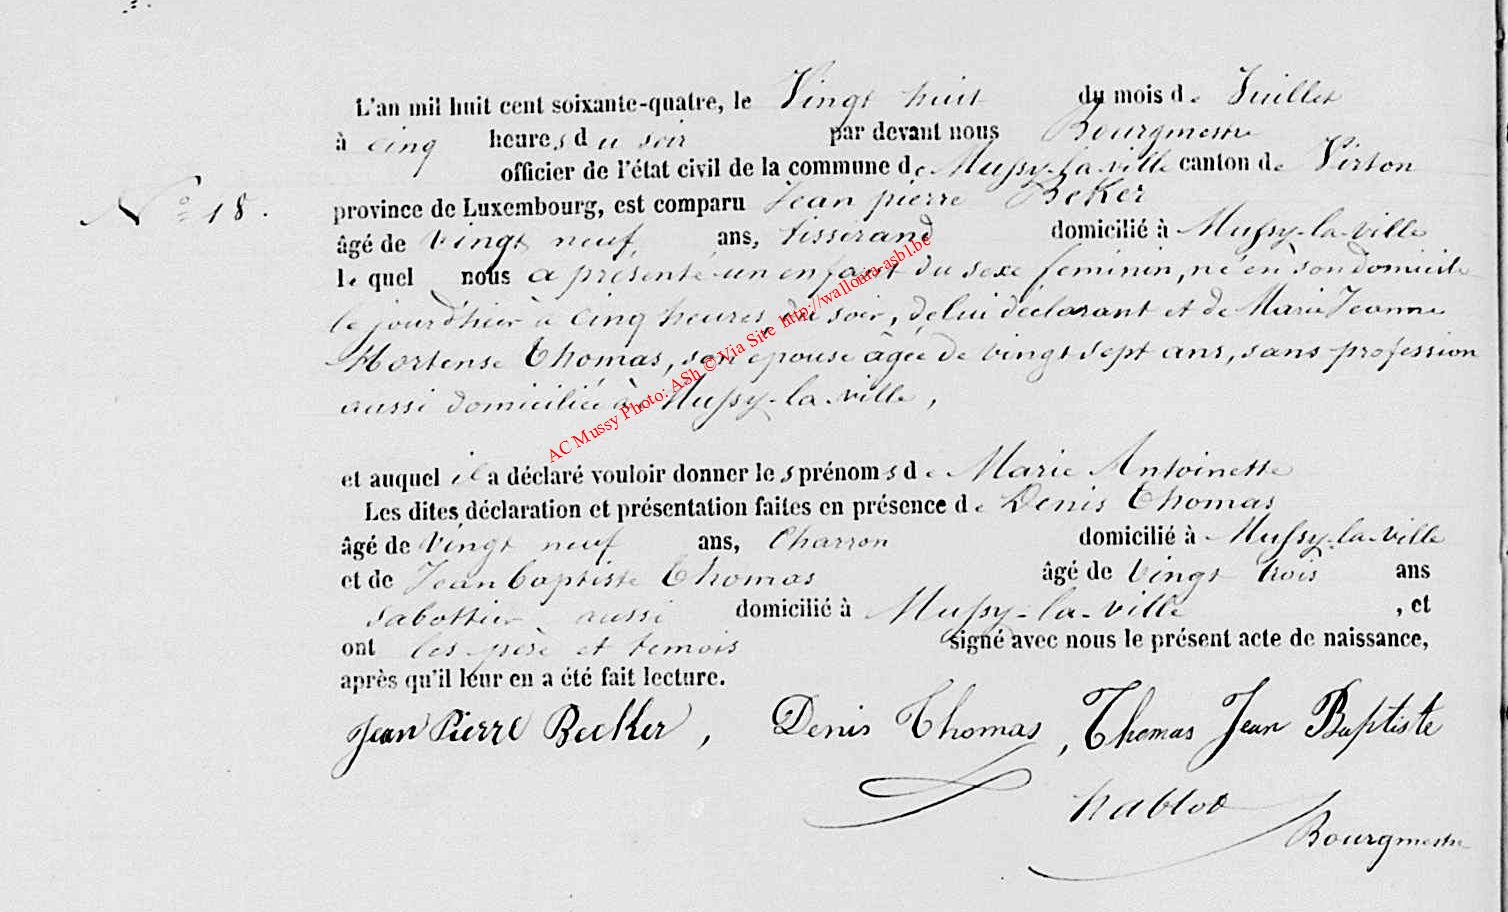 L'an mil huit cent soixante-quatre, le Vingt huit du mois de Juillet
à cinq heures du soir par devant nous Bourgmestre
officier de l'état civil de la commune de Mussy-la-ville canton de Virton
N° 18.
province de Luxembourg, est comparu Jean pierre Beker
âgé de vingt neuf ans, tisserand domicilié à Mussy-la-ville
le quel nous a présenté un enfant du sexe feminin, né en son domicile
le jourd'hier à cinq heures du soir, de lui déclarant et de Marie Jeanne
Hortense Thomas, son épouse âgée de vingt sept ans, sans profession
aussi domiciliée à Mussy-la-ville,
et auquel il a déclaré vouloir donner les prénoms de Marie Antoinette
Les dites déclaration et présentation faites en présence de Denis Thomas
âgé de vingt neuf ans, Charron domicilié à Mussy-la-ville
et de Jean baptiste Thomas âgé de vingt trois ans
sabottier aussi domicilié à Mussy-la-ville , et
ont les père et temois signé avec nous le présent acte de naissance,
après qu'il leur en a été fait lecture.
Jean Pierre Becker, Denis Thomas, Thomas Jean Baptiste
hablot
Bourgmestre
AC Mussy Photo: ASh © Via Site http://wallonia-asbl.be